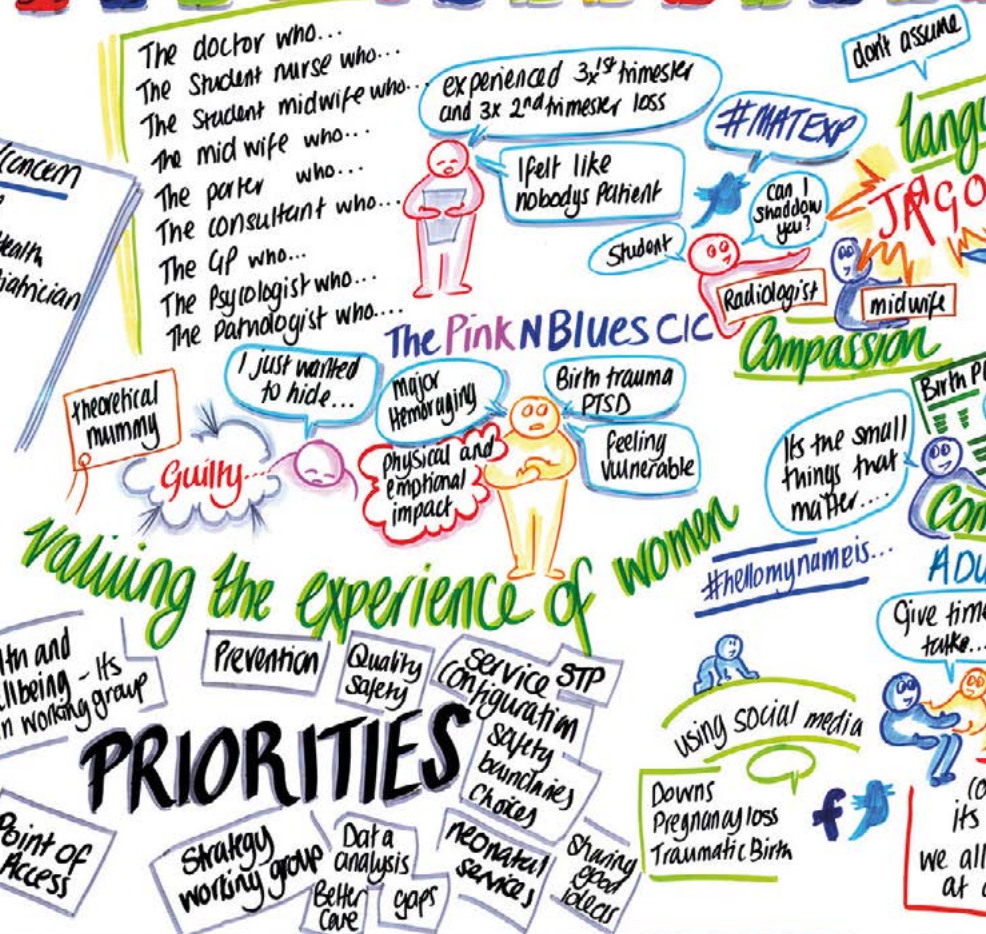 The doctor who...
The Student nurse who...
The Student midwife who...
The mid wife who...
The porter who...
The consultant who...
The GP who...
The Psycologist who...
The Pathologist who....
/concern
Health
experienced 3x 1st trimester
and 3x 2nd trimester loss
I felt like
nobodys Patient
#MATEXP
don't assume
Student
can I
shaddow
you?
Radiologist
midwife
Compassion
The Pink N Blues CIC
theoretical
mummy
Guilty...
I just wanted
to hide...
Major
Hemoraging
physical and
emotional
impact
Birth trauma
PTSD
feeling
vulnerable
Birth Pl
Its the small
things that
matter....
#hellomynameis...
Valuing the experience of women
Give time
talke...
lth and
llbeing - Its
n working group
Prevention
Quality
Safety
Service
Configuration
STP
safety
bundries
Choices
PRIORITIES
Point of
Access
Strategy
working group
Data
analysis
Better
Care
gaps
neonatal
services
Sharing
good
ideas
using social media
Downs
Pregnancy loss
Traumatic Birth
f
its
we all
at